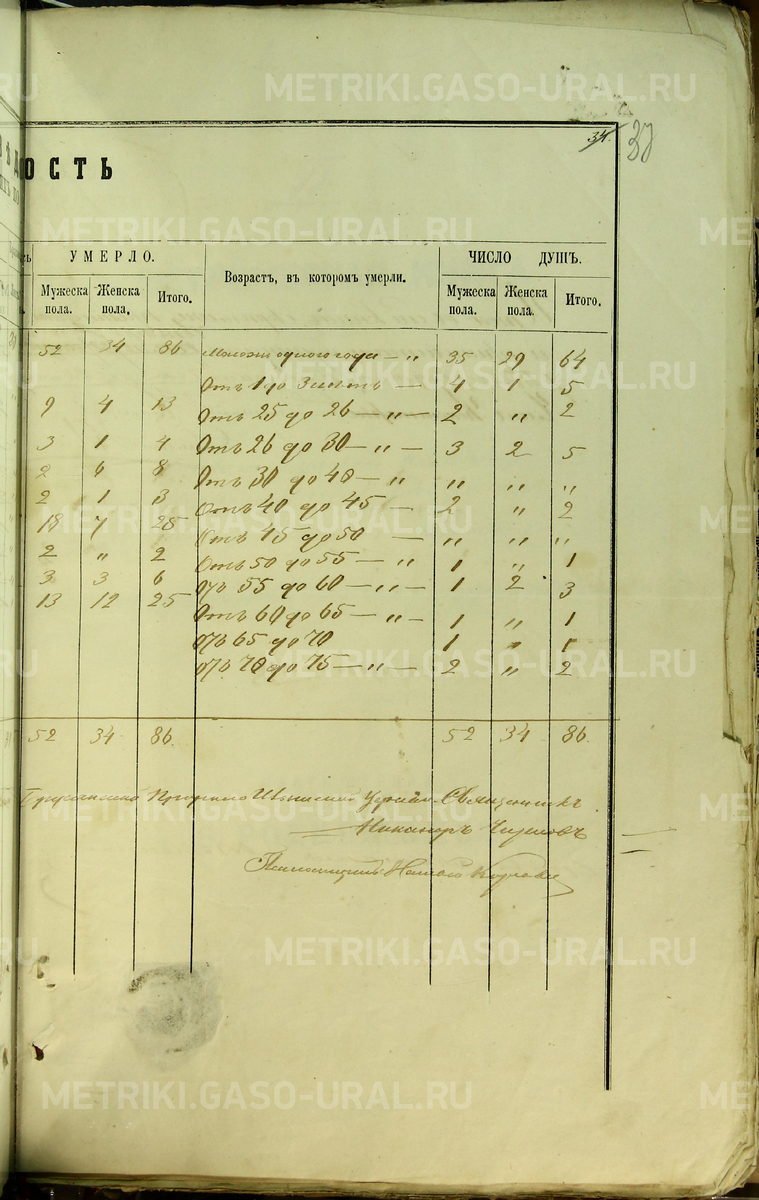 34.
ОСТЬ
УМЕРЛО.
Возрастъ, въ которомъ умерли.
ЧИСЛО ДУШЪ.
Мужеска пола.
Женска пола,
Итого.
Мужеска пола.
Женска пола.
Итого.
52 34 86 одного года — „ 35 29 64
Отъ 1 до — 4 1 5
9 4 13 Отъ 25 до 26 — „ — 2 „ 2
3 1 4 Отъ 26 до 30 — „ — 3 2 5
2 6 8 Отъ 30 до 40 — „ „ „ „
2 1 3 Отъ 40 до 45 — 2 „ 2
18 7 25 Отъ 45 до 50 — „ „ „
2 „ 2 Отъ 50 до 55 — „ 1 „ 1
3 3 6 Отъ 55 до 60 — „ — 1 2 3
13 12 25 Отъ 60 до 65 — „ — 1 „ 1
Отъ 65 до 70 1 „ 1
Отъ 70 до 75 — „ — 2 „ 2
52 34 86. 52 34 86.
Священникъ
Никаноръ
METRIKI.GASO-URAL.RU